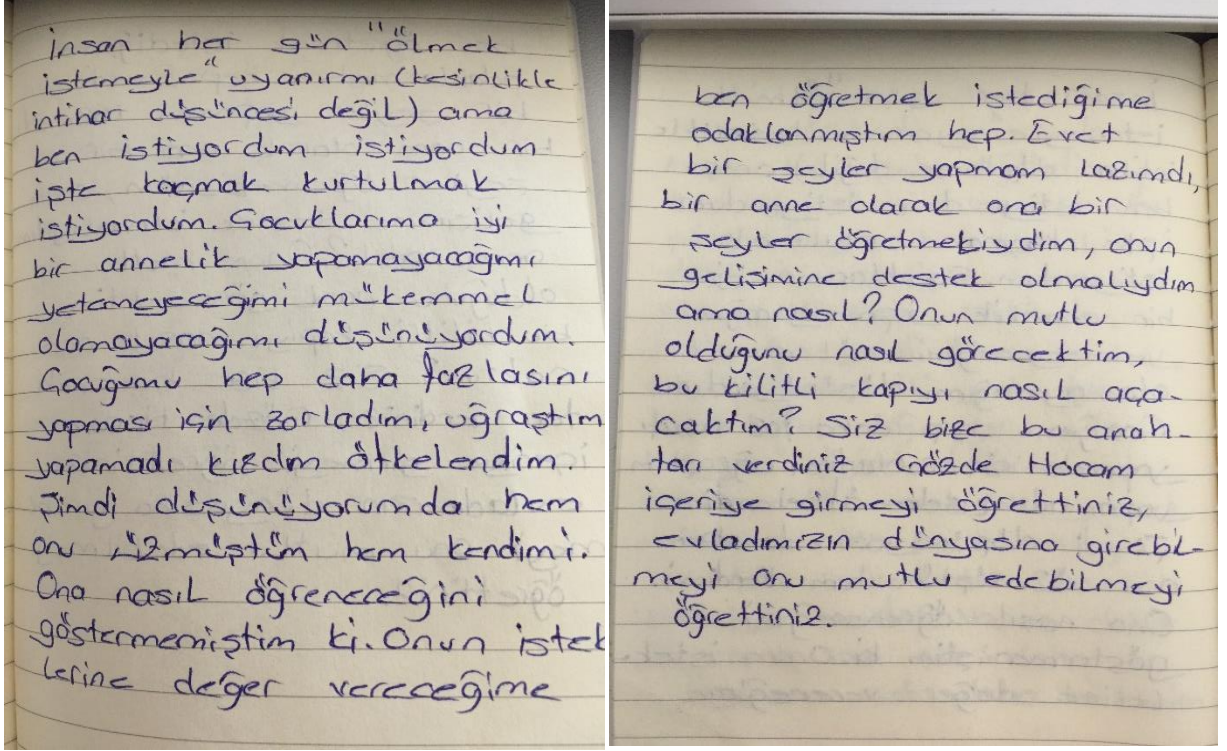 insan her gün "ölmek
istemeyle" uyanırmı (kesinlikle
intihar düşüncesi değil) ama
ben istiyordum istiyordum
işte kaçmak kurtulmak
istiyordum. Çocuklarıma iyi
bir annelik yapamayacağmı
yetemeyeceğimi mükemmel
olamayacağımı düşünüyordum.
Çocuğumu hep daha fazlasını
yapması için zorladım, uğraştım
yapamadı kızdım ötkelendim.
Şimdi düşünüyorumda hem
onu üzmüştüm hem kendimi.
Ona nasıl öğreneceğini
göstermemiştim ki. Onun istek
lerine değer vereceğime
ben öğretmek istediğime
odaklanmıştım hep. Evet
bir şeyler yapmam lazımdı,
bir anne olarak ona bir
şeyler öğretmekiydim, onun
gelişimine destek olmalıydım
ama nasıl? Onun mutlu
olduğunu nasıl görecektim,
bu kilitli kapıyı nasıl aça-
caktım? Siz bize bu anah-
tarı verdiniz Gözde Hocam
içeriye girmeyi öğrettiniz,
evladımızın dünyasına girebil-
meyi onu mutlu edebilmeyi
öğrettiniz.